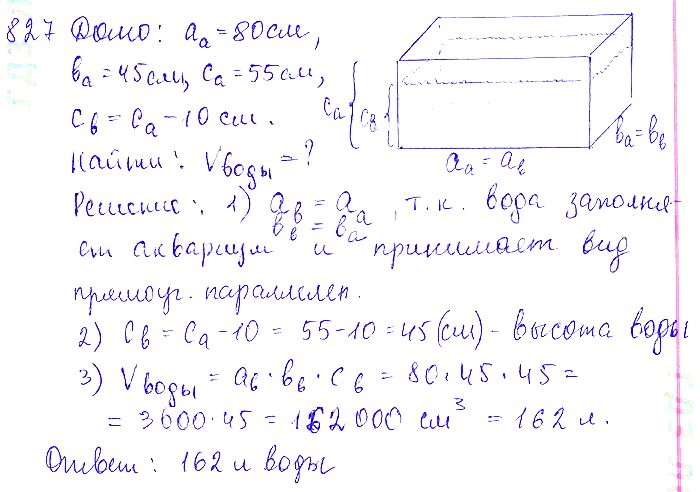 827 Дано: aₐ = 80 см,
bₐ = 45 см, cₐ = 55 см,
cв = cₐ − 10 см.
Найти: Vводы = ?
cₐ
cв
bₐ = bв
aₐ = aв
Решение: 1) aв = aₐ, т.к. вода заполня-
bв = bₐ
ет аквариум и принимает вид
прямоуг. параллелеп.
2) cв = cₐ − 10 = 55 − 10 = 45 (см) – высота воды
3) Vводы = aв · bв · cв = 80 · 45 · 45 =
= 3600 · 45 = 162 000 см³ = 162 л.
Ответ: 162 л воды